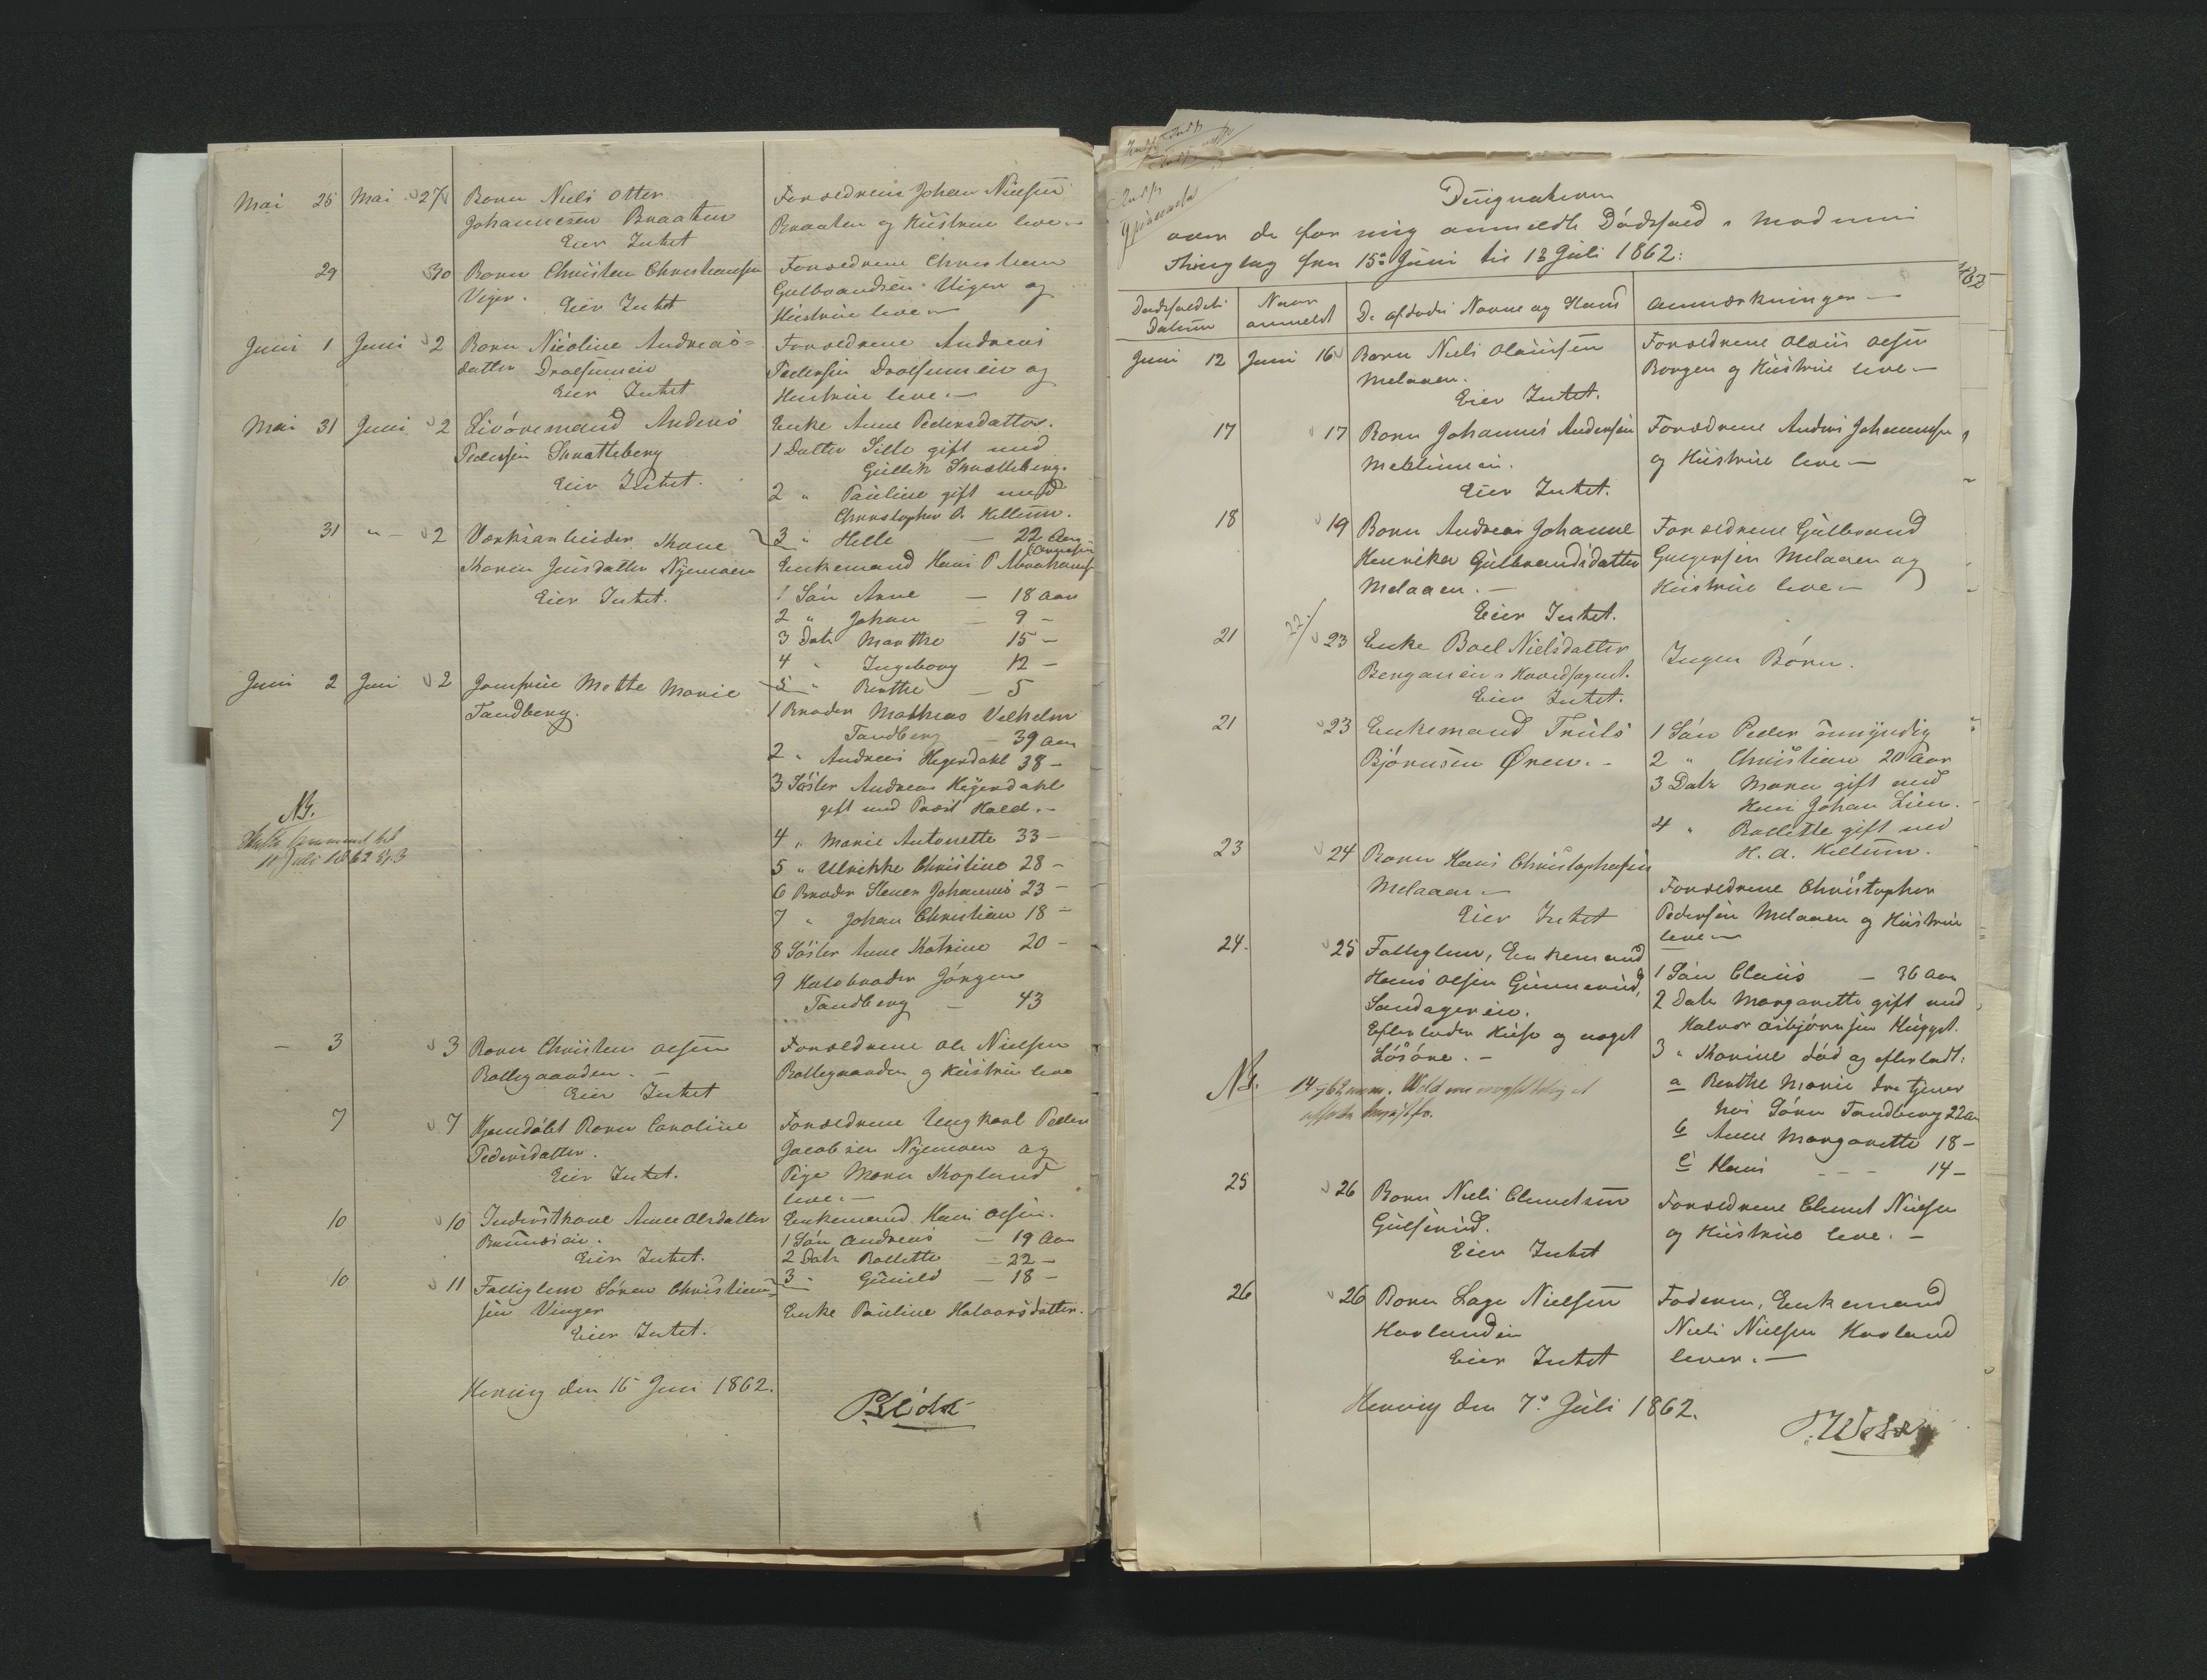 Mai 25 Mai 27 Barn Niels Otter
Johannesen Braaten
Eier Intet
Forældrene Johan Nielsen
Braaten og Hustrue leve
29 30 Barn Christen Christiansen
Viger. Eier Intet
Forældrene Christian
Gulbrandsen Viger og
Hustrue leve
Juni 1 Juni 2 Barn Nicoline Andreas-
datter
Eier Intet
Forældrene Andreas
Pedersen og
Hustrue leve.
Mai 31 Juni 2 Livøremand Anders
Pedersen Skratteberg
Eier Intet.
Enke Anne Pedersdatter.
1 Datter Sille gift med
Gullik Skratteberg.
2 " Pauline gift med
Christopher A. Kellum.
3 " Helle — 22 Aar
31 " - 2 Værksarbeider Kone
Karen Jensdatter Nymoen
Eier Intet.
Enkemand Hans P
1 Søn Arne — 18 Aar
2 " Johan — 9 -
3 Datr Marthe 15 -
4 " Ingeborg 12 -
5 " Berthe — 5
Juni 2 Juni 2 Jomfrue Mette Marie
Tandberg.
1 Broder Mathias Vilhelm
Tandberg — 39 Aar
2 " Andreas Hegerdahl 38 -
3 Søster Andrea Hegerdahl
gift med Præst Hald. -
4 " Marie Antonette 33 -
5 " Ulrikke Christine 28 -
6 Broder Stener Johannes 23 -
7 " Johan Christian 18 -
8 Søster Anne Katrine 20 -
9 Halvbroder Jørgen
Tandberg — 43
NB.
11 Juli 1862
- 3 3 Barn Christen Olsen
Ballegaarden. -
Eier Intet
Forældrene Ole Nielsen
Ballegaarden og Hustrue leve
7 7 Hjemdøbt Barn Caroline
Pedersdatter.
Eier Intet.
Forældrene Ungkarl Peder
Jacobsen Nymoen og
Pige Maren Kopland
leve. -
10 10 Inderstkone Anne Olsdatter
Eier Intet.
Enkemand Hans Olsen.
1 Søn Andreas — 19 Aar
2 Datr Bollette — 22 -
3 " Gunild — 18 -
10 11 Fattiglem Søren Christian-
sen Vinger
Eier Intet.
Enke Pauline Halvorsdatter.
Hervig den 15 Juni 1862.
Designation
over de for mig anmeldte Dødsfald i Modums
Thinglag fra 15de Juni til 13 Juli 1862:
Dødsfaldets
Datum
Naar
anmeldt
De afdødes Navne og Stand
Anmærkninger —
Juni 12 Juni 16 Barn Niels Olausen
Melaaen.
Eier Intet.
Forældrene Olaus Olsen
Borgen og Hustrue leve —
17 17 Barn Johannes Andersen
Eier Intet.
Forældrene Anders Johannesen
og Hustrue leve —
18 19 Barn Andrea Johanne
Henrika Gulbrandsdatter
Melaaen. —
Eier Intet.
Forældrene Gulbrand
Gregersen Melaaen og
Hustrue leve —
21 23 Enke Boel Nielsdatter
Eier Intet.
Ingen Børn.
21 23 Enkemand Truls
Bjørnsen Øren. -
1 Søn Peder umyndig
2 " Christian 20 Aar
3 Datr Maren gift med
Hans Johan Lien.
4 " Bollette gift med
H. A. Kellum.
23 24 Barn Hans Christophersen
Melaaen —
Eier Intet
Forældrene Christopher
Pedersen Melaaen og Hustrue
leve —
24. 25 Fattiglem, Enkemand
Hans Olsen Gunnerud,
Sandagereie.
Efterlader Huse og noget
Løsøre. -
1 Søn Claus — 36 Aar
2 Datr Margarette gift med
Halvor Asbjørnsen Hugget.
3 " Karine død og efterladt:
a Berthe Marie der tjener
hos Søren Tandberg 22 Aar
b Anne Margarette 18 -
c Hans - - - 14 -
NB.
25 26 Barn Niels Clemetsen
Gulsrud.
Eier Intet
Forældrene Clemet Nielsen
og Hustrue leve. -
26 26 Barn Lage Nielsen
Eier Intet
Faderen, Enkemand
Niels Nielsen Hovland
lever. —
Hervig den 7de Juli 1862.